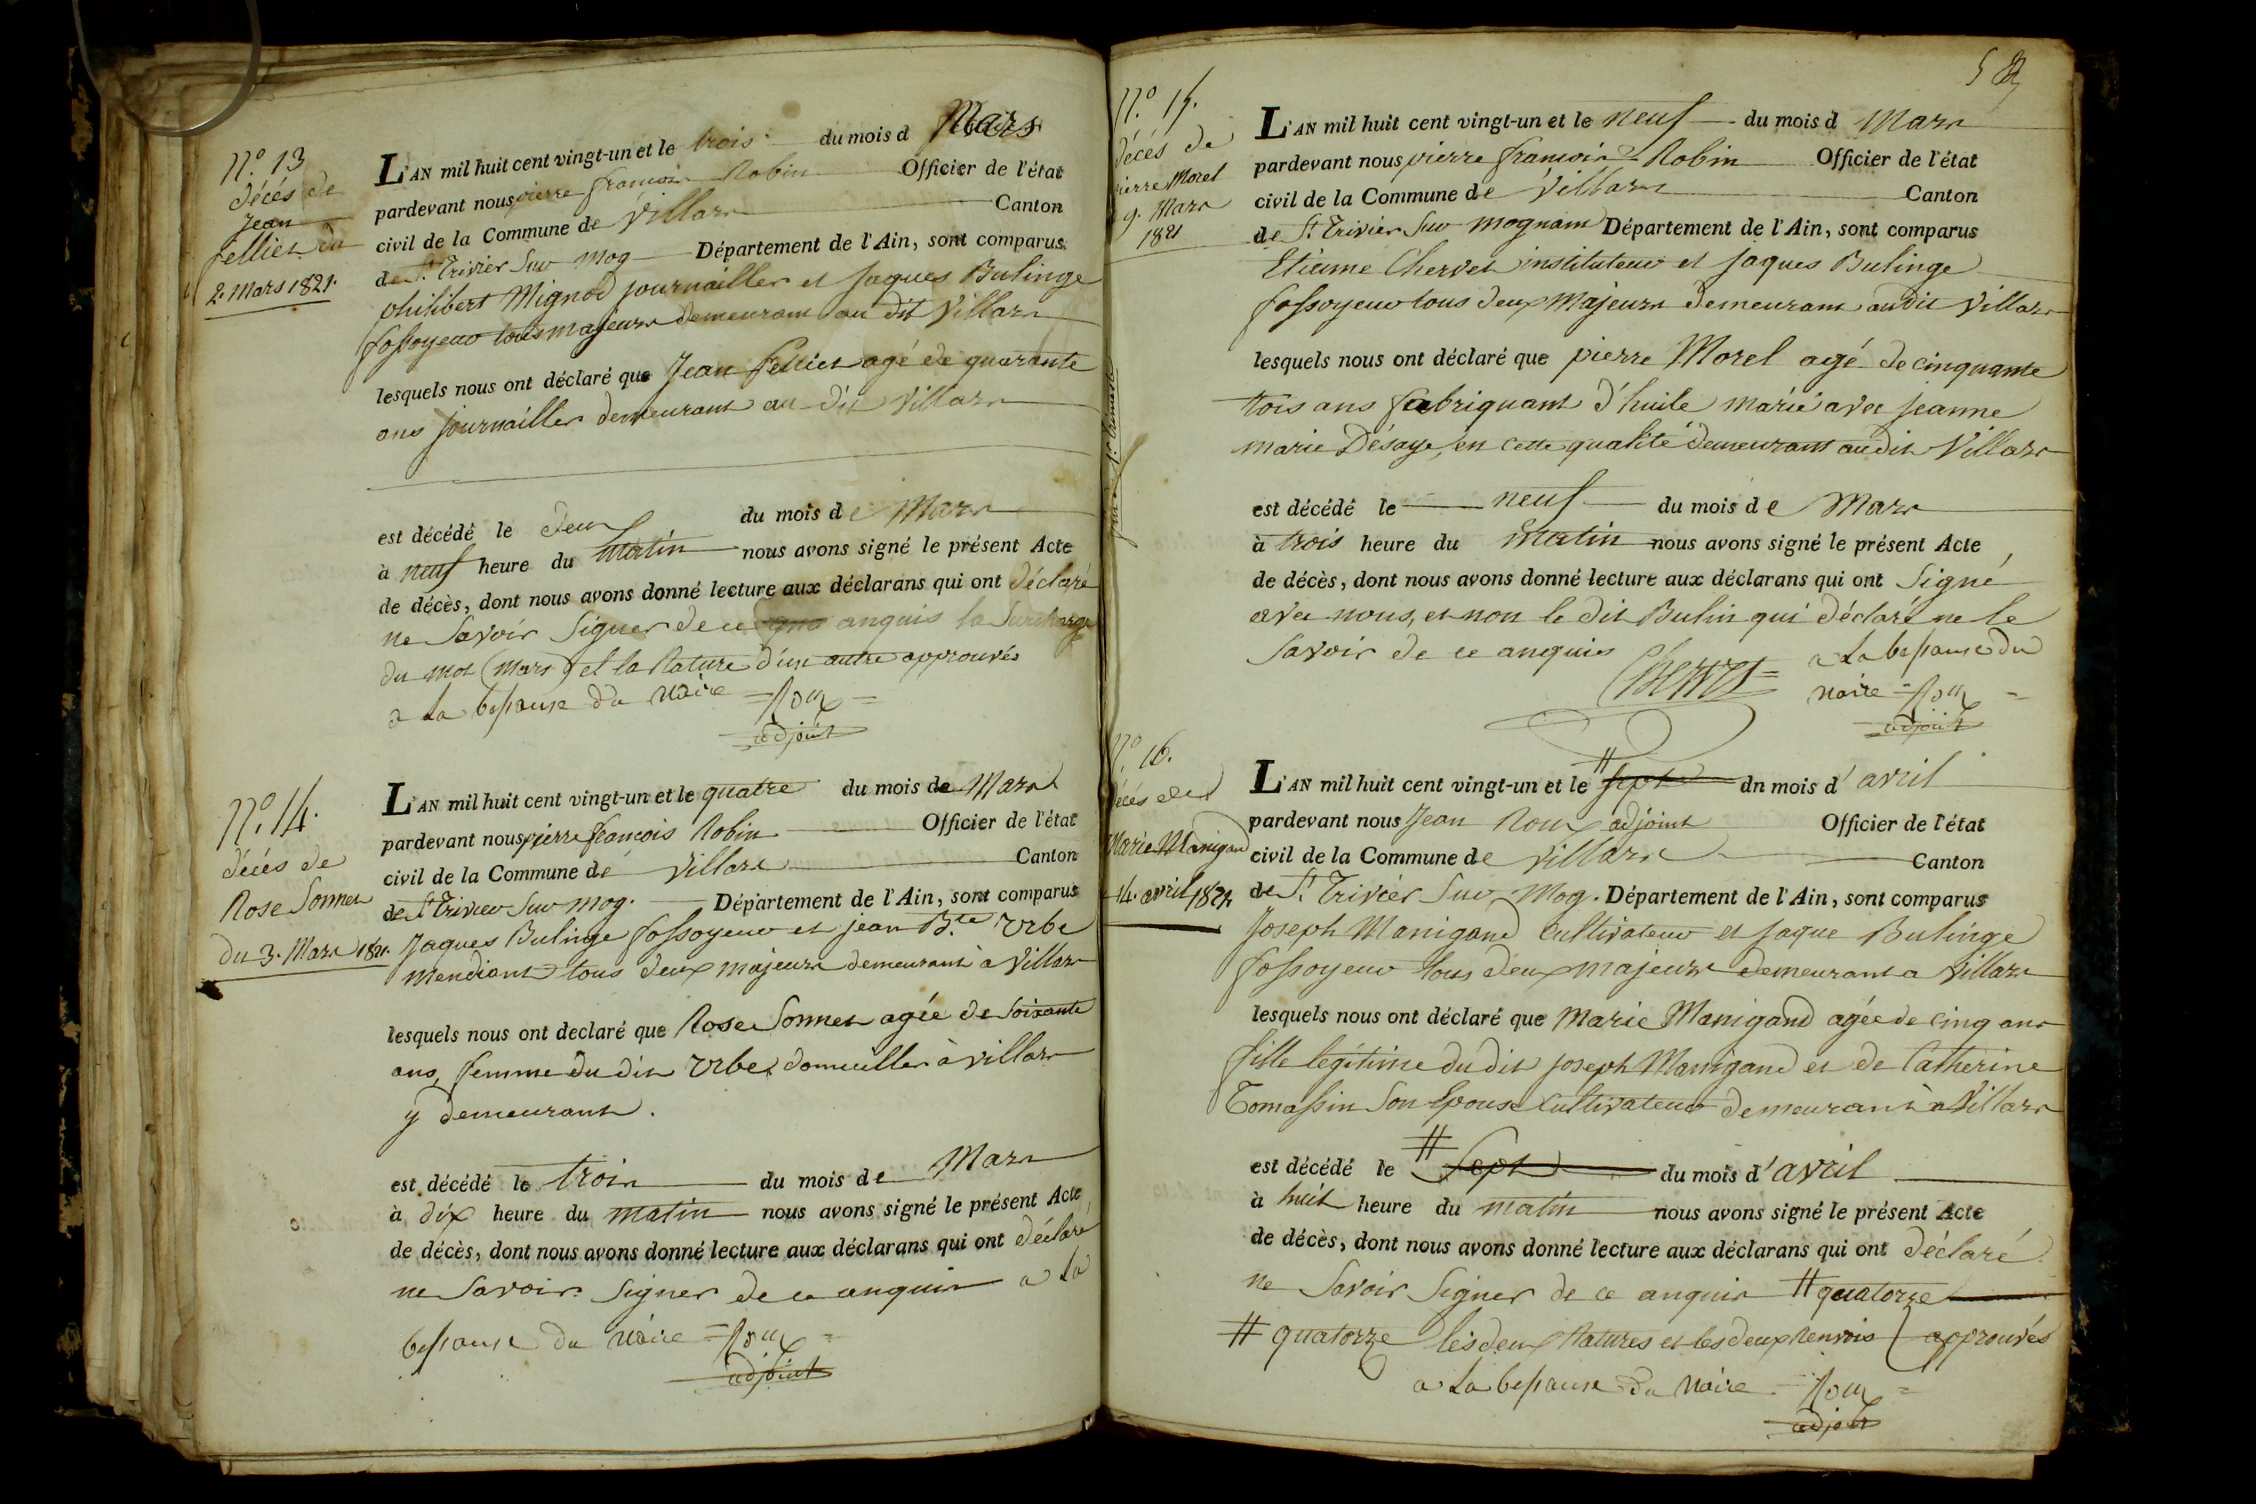 N.º 13
décés de
Jean
fellier du
2. Mars 1821.
L'AN mil huit cent vingt-un et le trois du mois d Mars
pardevant nous pierre francois Robin Officier de l'état
civil de la Commune de Villars Canton
de St. Trivier Sur Mog Département de l'Ain, sont comparus
philibert Mignod journailler et jaques Bulinge
fossoyeur tous majeurs demeurant au dit Villars
lesquels nous ont déclaré que Jean fellier agé de quarante
ans journailler demeurant au dit Villars
est décédé le deux du mois de Mars
à neuf heure du matin nous avons signé le présent Acte
de décès, dont nous avons donné lecture aux déclarans qui ont déclaré
ne Savoir Signer de ce anquis la Surcharge
du mot (mars) et la Rature d'un autre approuvés
a La bessance du Maire = Roux =
adjoint
N.º 14.
décés de
Rose Sonnet
du 3. Mars 1821.
L'AN mil huit cent vingt-un et le quatre du mois de Mars
pardevant nous pierre francois Robin Officier de l'état
civil de la Commune de Villars Canton
de St. Trivier Sur Mog. Département de l'Ain, sont comparus
Jaques Bulinge fossoyeur et jean B.te Urbe
mendiant tous deux majeurs demeurant à Villars
lesquels nous ont declaré que Rose Sonnet agée de Soixante
ans, femme du dit Urbe, domicillier à villars
y demeurant.
est décédé le trois du mois de Mars
à dix heure du matin nous avons signé le présent Acte
de décès, dont nous avons donné lecture aux déclarans qui ont déclaré
ne Savoir Signer de ce anquis a La
bessance du Maire = Roux =
adjoint
N.º 15.
décés de
pierre Morel
9. Mars
1821
L'AN mil huit cent vingt-un et le neuf du mois d Mars
pardevant nous pierre francois Robin Officier de l'état
civil de la Commune de Villars Canton
de St. Trivier Sur Mognam Département de l'Ain, sont comparus
Etienne Chervet instituteur et jaques Bulinge
fossoyeur tous deux Majeurs demeurant audit Villars
lesquels nous ont déclaré que pierre Morel agé de cinquante
tois ans fabriquant d'huile marié avec jeanne
marie Désaye, en cette qualité demeurant audit Villars
est décédé le neuf du mois de Mars
à trois heure du Matin nous avons signé le présent Acte
de décès, dont nous avons donné lecture aux déclarans qui ont Signé
avec nous, et non le dit Bulin qui déclaré ne le
Savoir de ce anquis a La bessance du
Chervet = Maire = Roux =
adjoint
N.º 16.
décés de
Marie Manigand
14. avril 1821
L'AN mil huit cent vingt-un et le # sept dn mois d'avril
pardevant nous Jean Roux adjoint Officier de l'état
civil de la Commune de Villars Canton
de St. Trivier Sur Mog. Département de l'Ain, sont comparus
Joseph Manigand Cultivateur et jaque Bulinge
fossoyeur tous deux majeurs demeurant a Villars
lesquels nous ont déclaré que Marie Manigand agée de cinq ans
fille legitime du dit joseph Manigand et de Catherine
Tomassin Son Epouse Cultivateur demeurant à Villars
est décédé le # Sept du mois d'avril
à huit heure du matin nous avons signé le présent Acte
de décès, dont nous avons donné lecture aux déclarans qui ont déclaré
ne Savoir Signer de ce anquis # quatorze
# quatorze les deux Ratures et les deux Renvois approuvés
a La bessance du Maire = Roux =
adjoint